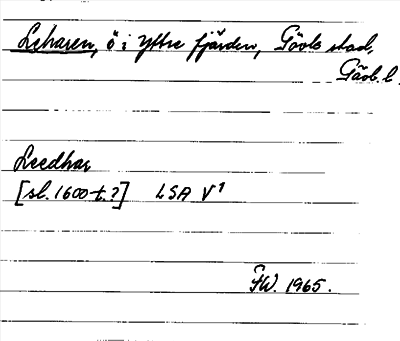 Leharen, ö i Yttre fjärden, Gävle stad,
Gävl. l.
Leedhar
[sl. 1600-t.?] LSA V¹
FW. 1965.